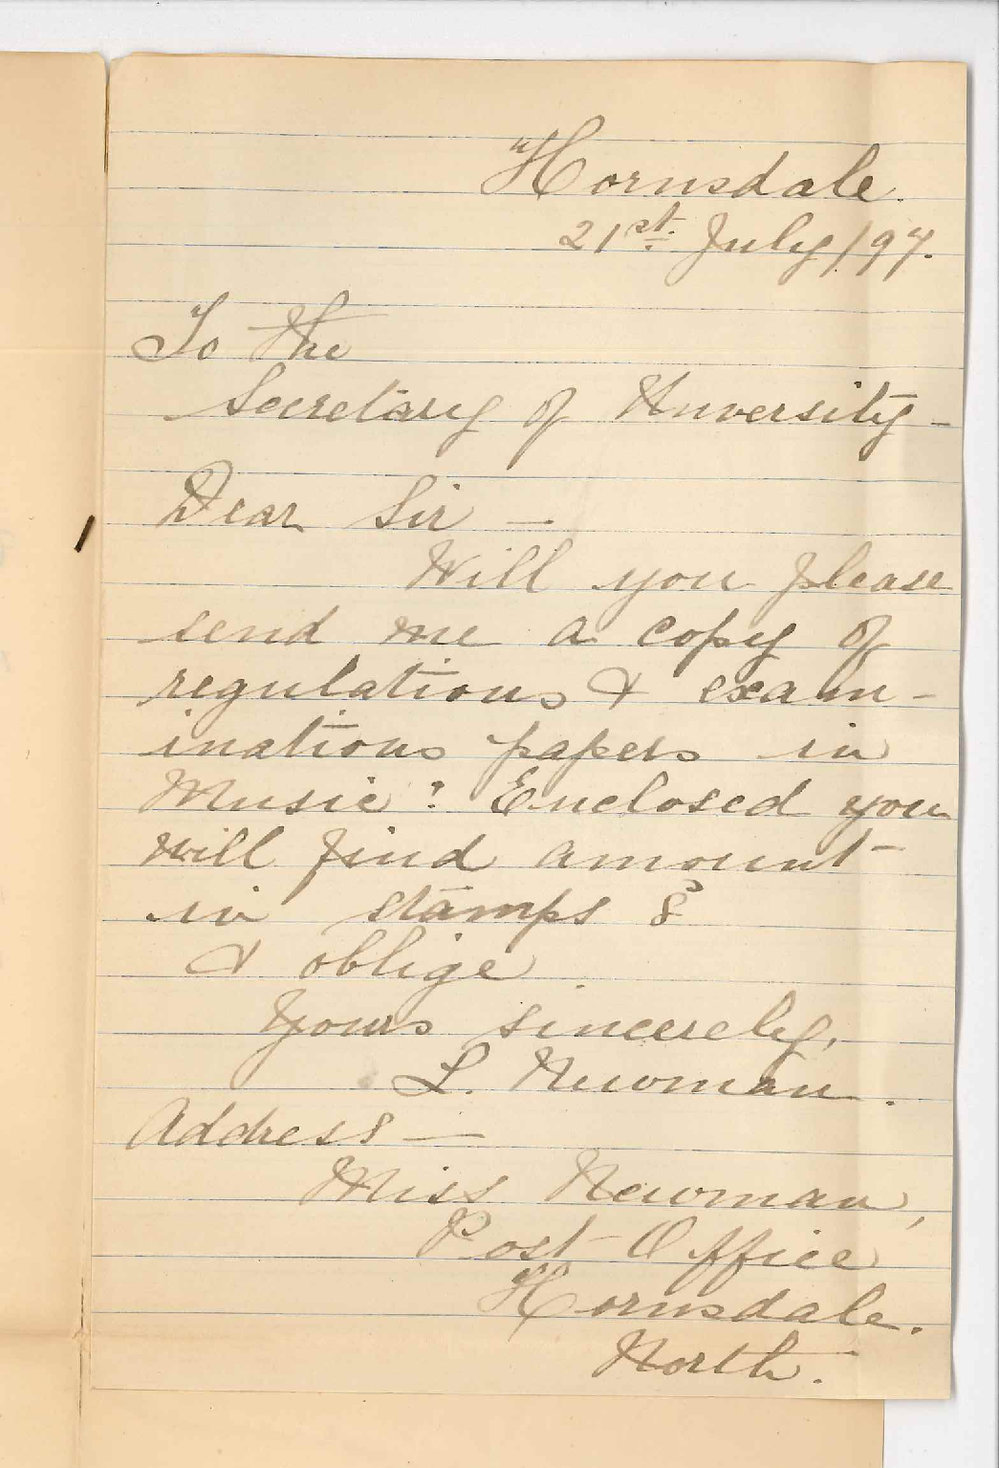 Hornsdale.
21st. July/97.
To the
Secretary of University -
Dear Sir -
Will you please
send me a copy of
regulations & exam-
inations papers in
Music: Enclosed you
will find amount
in stamps 8
& oblige
Yours sincerely,
L. Newman.
Address -
Miss Newman,
Post Office
Hornsdale.
North.